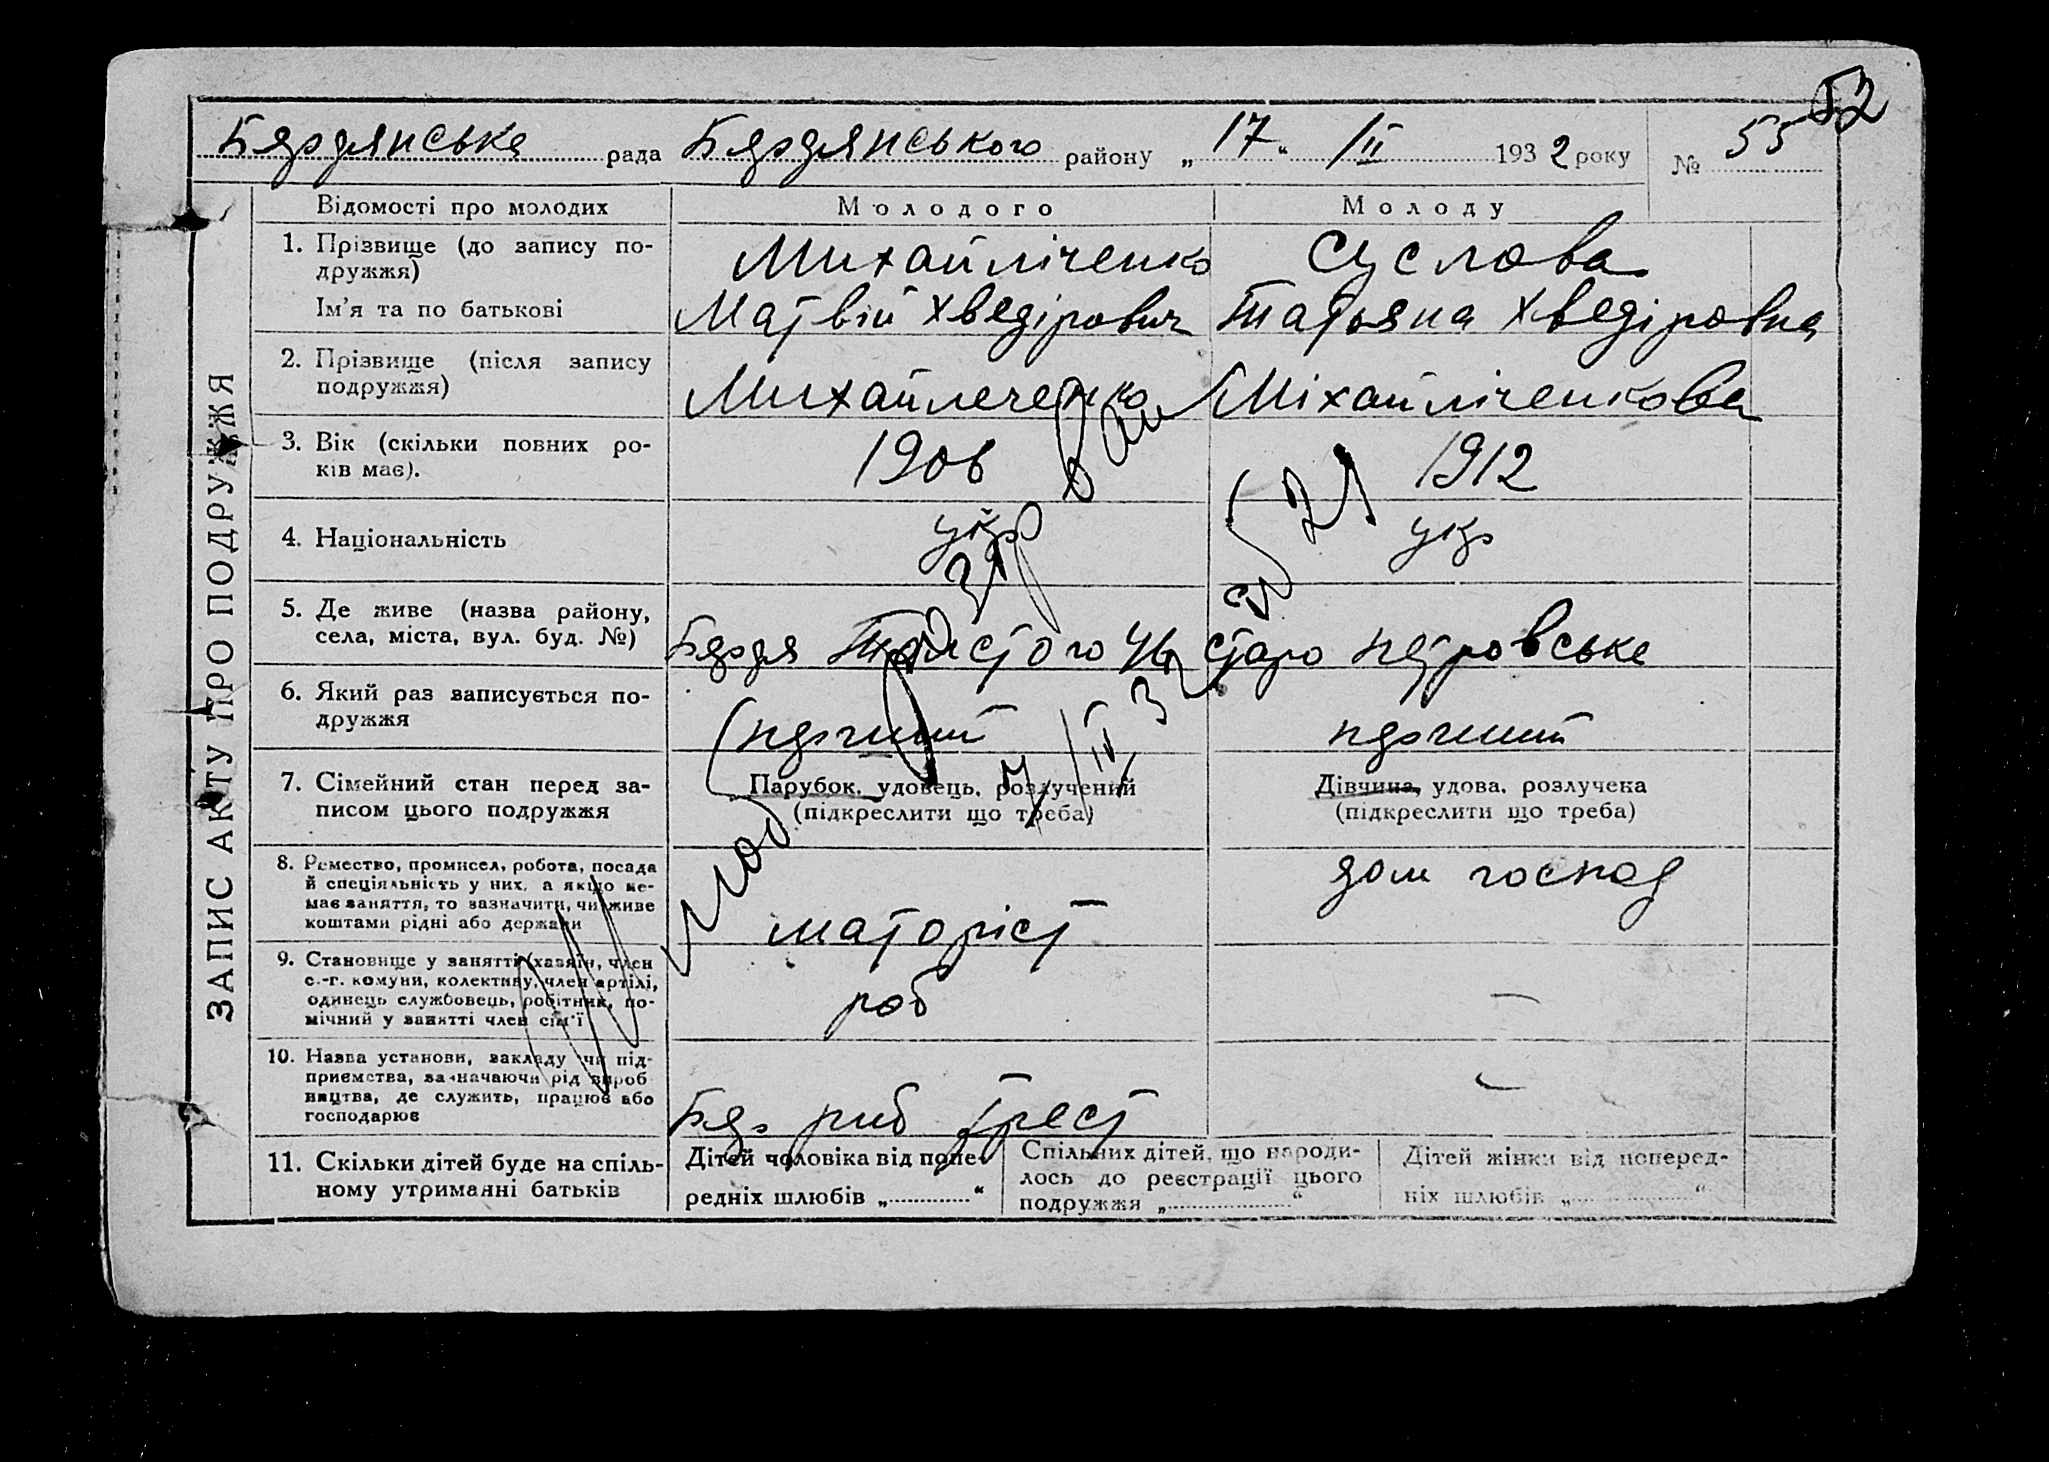 52
Бердянська рада Бердянського району „17“ /II 1932 року № 55
ЗАПИС АКТУ ПРО ПОДРУЖЖЯ
Відомості про молодих Молодого Молоду
1. Прізвище (до запису по- Михайліченко Суслова
дружжя)
Ім'я та по батькові Матвій Хведірович Татьяна Хведіровна
2. Прізвище (після запису Михайлеченко Міхайліченкова
подружжя)
3. Вік (скільки повних ро- 1906 1912
ків має).
4. Національність укр укр
5. Де живе (назва району,
села, міста, вул. буд. №) Бердя Толстого 46 старо петровське
6. Який раз записується по-
дружжя перший перший
7. Сімейний стан перед за- Парубок, удовець, розлучений Дівчина, удова, розлучена
писом цього подружжя (підкреслити що треба) (підкреслити що треба)
8. Ремество, промисел, робота, посада дом господ
й спеціяльність у них, а якщо не-
має заняття, то зазначити, чи живе
коштами рідні або держави маторіст
9. Становище у занятті (хазяїн, член
с.-г. комуни, колективу, член артілі,
одинець службовець, робітник, по- роб —
мічний у занятті член сім'ї
10. Назва установи, закладу чи під-
приємства, зазначаючи рід вироб- —
ництва, де служить, працює або
господарює Бер риб трест
11. Скільки дітей буде на спіль-
ному утриманні батьків
Дітей чоловіка від попе-
редніх шлюбів „ “
Спільних дітей, що народи-
лось до реєстрації цього
подружжя „ “
Дітей жінки від поперед-
ніх шлюбів „ “